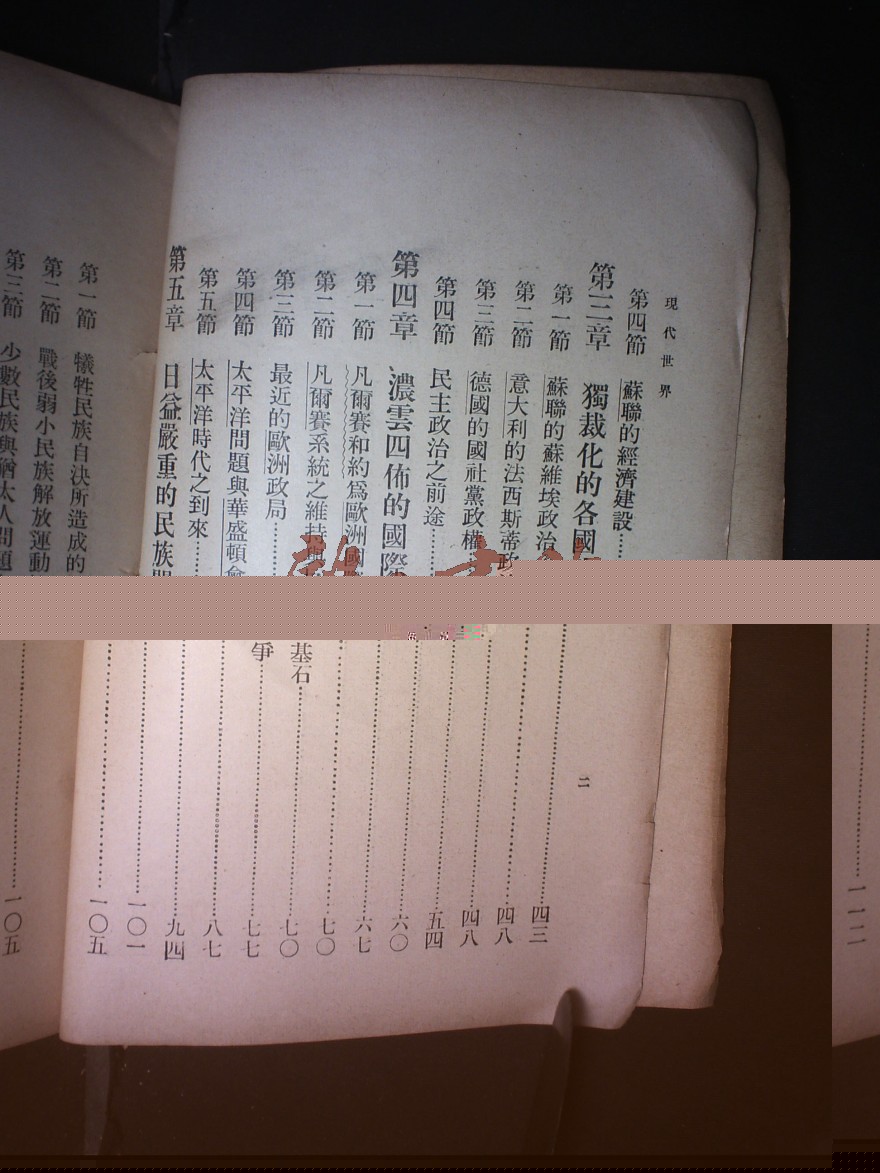 現代世界
第四節 蘇聯的經濟建設……四三
第三章 獨裁化的各國……四八
第一節 蘇聯的蘇維埃政治……四八
第二節 意大利的法西斯蒂政……五四
第三節 德國的國社黨政權……六〇
第四節 民主政治之前途……六七
第四章 濃雲四佈的國際……七〇
第一節 凡爾賽和約爲歐洲國 基石……七〇
第二節 凡爾賽系統之維持與 爭……七七
第三節 最近的歐洲政局……八七
第四節 太平洋問題與華盛頓會……九四
第五節 太平洋時代之到來……一〇一
第五章 日益嚴重的民族問……一〇五
第一節 犧牲民族自決所造成的……一〇五
第二節 戰後弱小民族解放運動……一一二
第三節 少數民族與猶太人問題
二